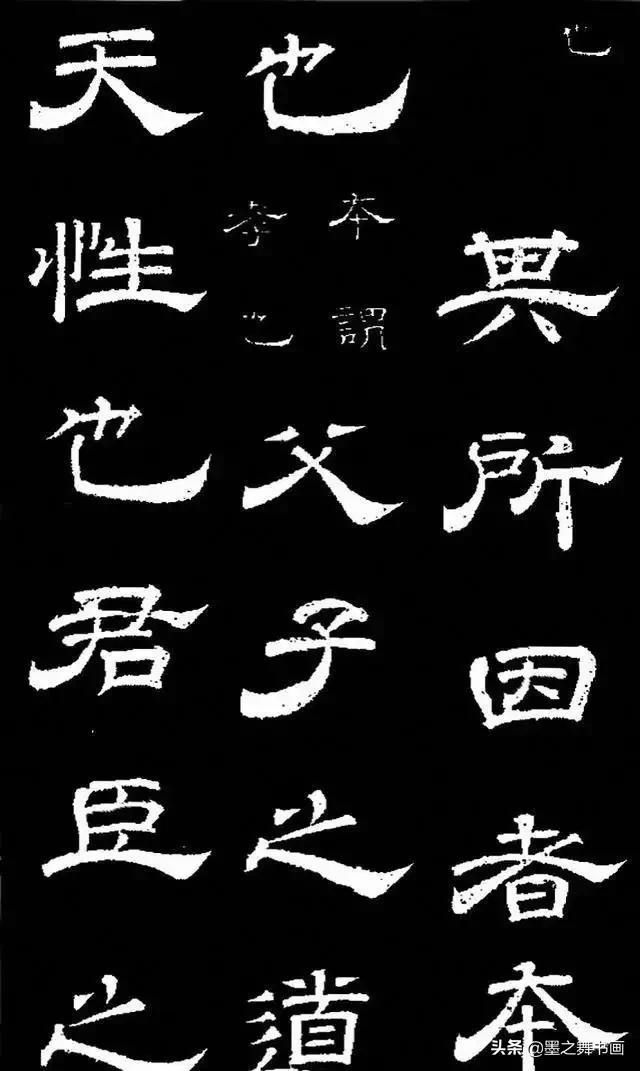 也其所因者本
也本謂孝也父子之道
天性也君臣之
头条 @墨之舞书画